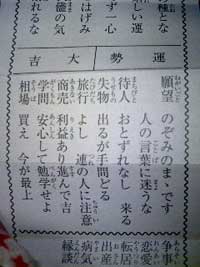 種とな
しい運
ず一心
はげみ
の気
れるな
運勢
大吉
願望 のぞみのまゝです
人の言葉に迷うな
待人 おとずれなし 来る
失物 出るが手間どる
旅行 よし 連の人に注意
商売 利益あり進んで吉
学問 安心して勉学せよ
相場 買え 今が最上
争事
恋愛
転居
出産
病気
縁談